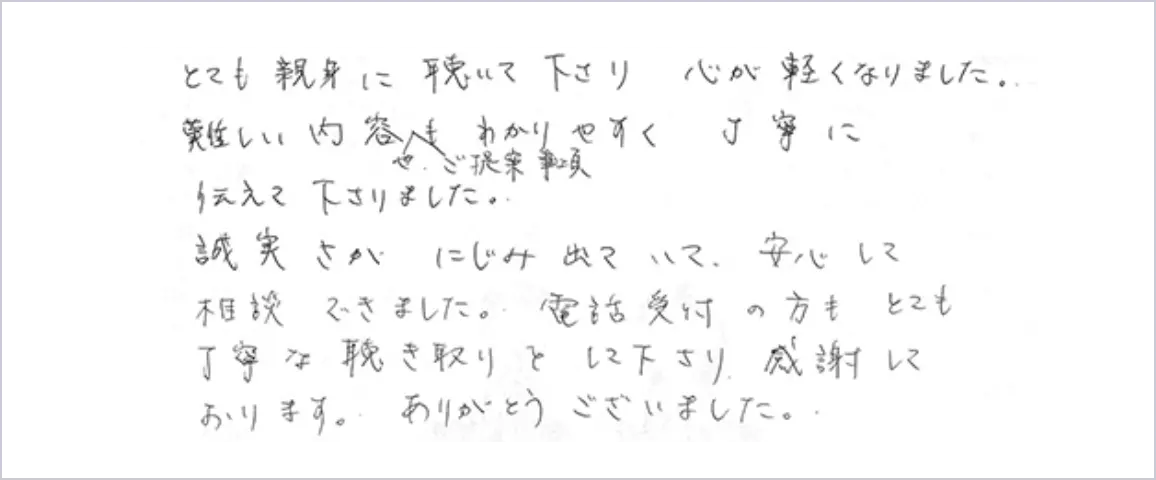 とても親身に聴いて下さり 心が軽くなりました。
難しい内容も わかりやすく 丁寧に
や、ご提案事項
伝えて下さりました。
誠実さが にじみ出ていて、安心して
相談できました。電話受付の方も とても
丁寧な聴き取りを して下さり、感謝して
おります。ありがとうございました。